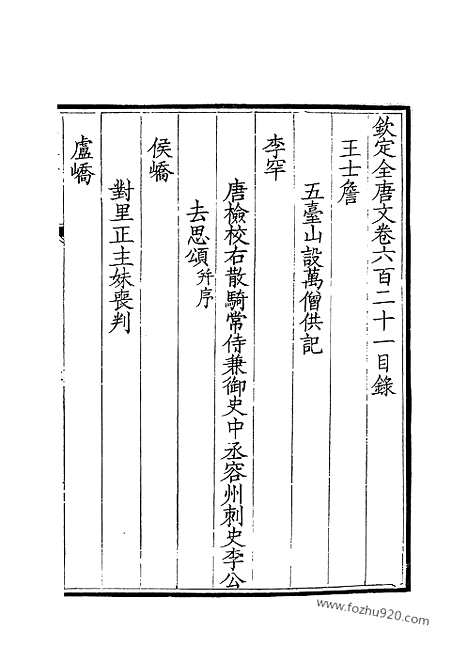 欽定全唐文卷六百二十一目錄
王士詹
五臺山設萬僧供記
李罕
唐檢校右散騎常侍兼御史中丞容州刺史李公
去思頌并序
侯嶠
對里正主妹喪判
盧嶠
www.fozhu920.com